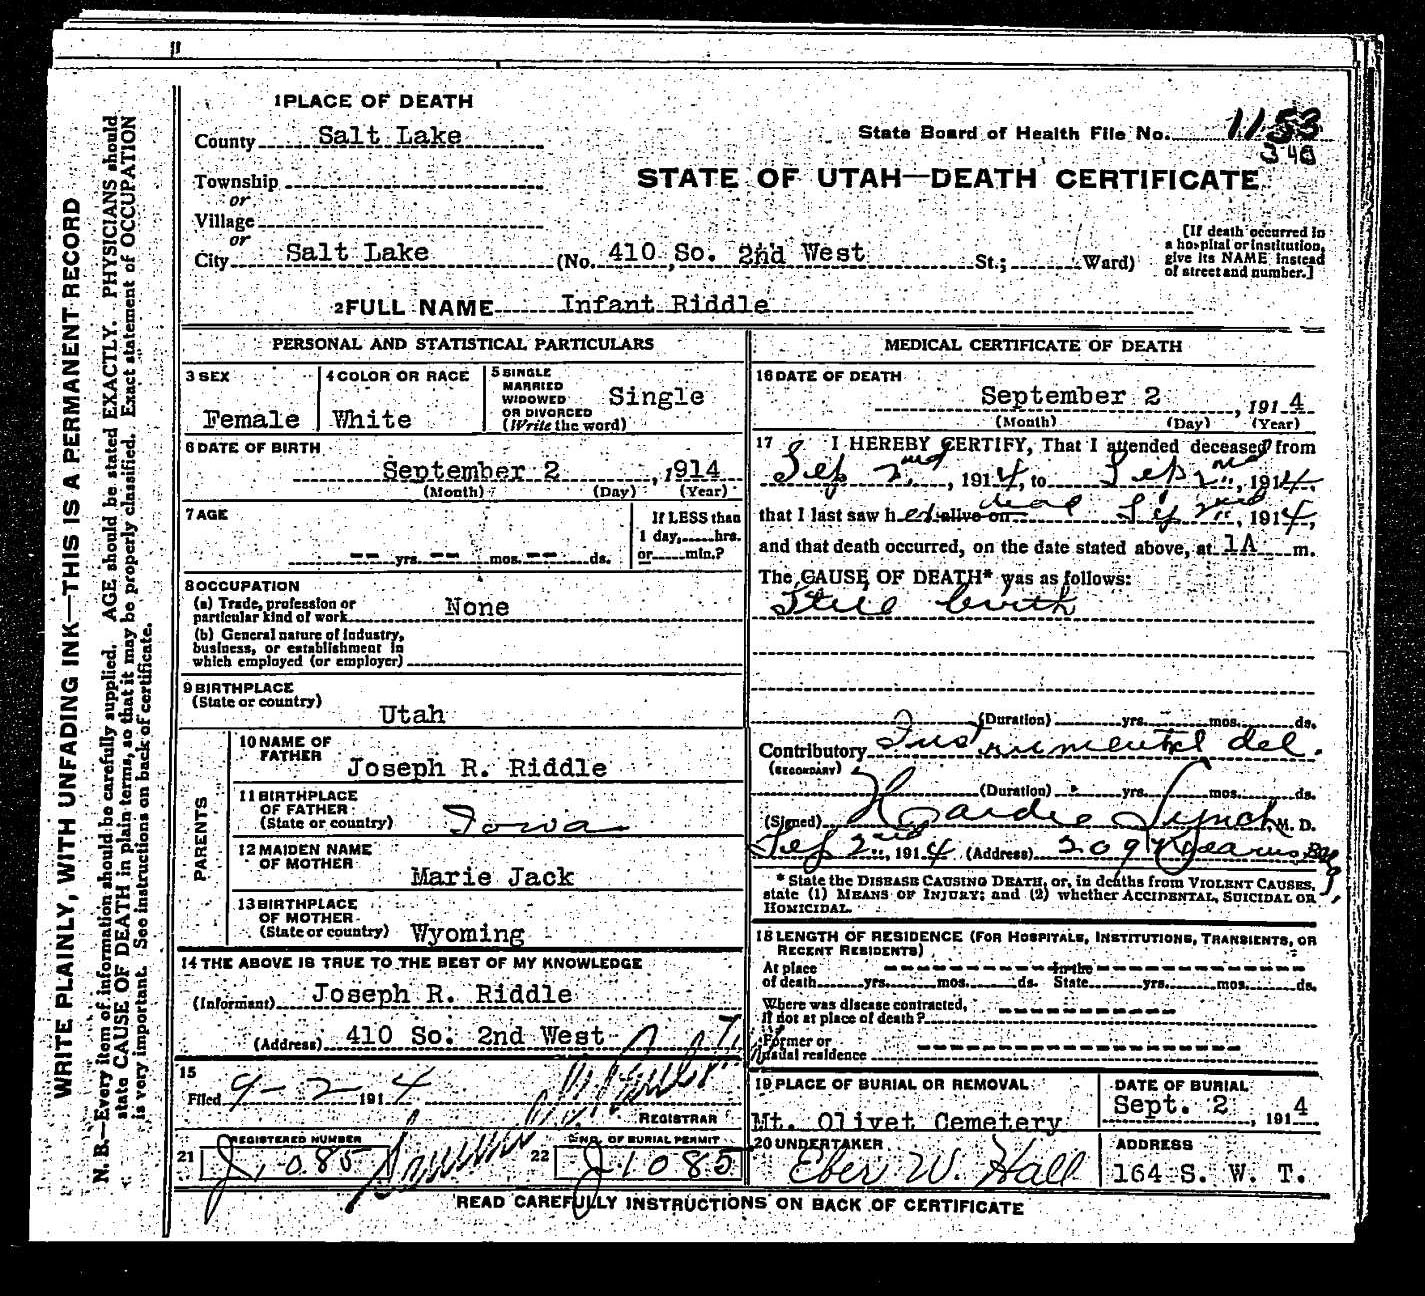 1 PLACE OF DEATH
County Salt Lake
State Board of Health File No. 1153
348
Township
or
Village
or
STATE OF UTAH—DEATH CERTIFICATE
City Salt Lake (No. 410 So. 2nd West St.; Ward)
[If death occurred in
a hospital or institution,
give its NAME instead
of street and number.]
2 FULL NAME Infant Riddle
PERSONAL AND STATISTICAL PARTICULARS
3 SEX
Female
4 COLOR OR RACE
White
5 SINGLE
MARRIED
WIDOWED
OR DIVORCED
(Write the word)
Single
6 DATE OF BIRTH
September 2, 1914
(Month) (Day) (Year)
7 AGE
-- yrs. -- mos. -- ds.
If LESS than
1 day, hrs.
or min.?
8 OCCUPATION
(a) Trade, profession or
particular kind of work None
(b) General nature of industry,
business, or establishment in
which employed (or employer)
9 BIRTHPLACE
(State or country)
Utah
PARENTS
10 NAME OF
FATHER
Joseph R. Riddle
11 BIRTHPLACE
OF FATHER
(State or country) Iowa
12 MAIDEN NAME
OF MOTHER
Marie Jack
13 BIRTHPLACE
OF MOTHER
(State or country) Wyoming
14 THE ABOVE IS TRUE TO THE BEST OF MY KNOWLEDGE
(Informant) Joseph R. Riddle
(Address) 410 So. 2nd West
15
Filed 9-2- 1914
REGISTRAR
21 REGISTERED NUMBER
J, 1085
22 NO. OF BURIAL PERMIT
J 1085
MEDICAL CERTIFICATE OF DEATH
16 DATE OF DEATH
September 2, 1914
(Month) (Day) (Year)
17 I HEREBY CERTIFY, That I attended deceased from
Sep 2nd, 1914, to Sep 2nd, 1914,
that I last saw her alive on dead Sep 2nd, 1914,
and that death occurred, on the date stated above, at 1A m.
The CAUSE OF DEATH* was as follows:
Still birth
(Duration) yrs. mos. ds.
Contributory Instrumental del.
(SECONDARY)
(Duration) yrs. mos. ds.
(Signed) Lynch, M. D.
Sep 2nd, 1914 (Address) 209 Kearns Bldg,
* State the DISEASE CAUSING DEATH, or, in deaths from VIOLENT CAUSES,
state (1) MEANS OF INJURY; and (2) whether ACCIDENTAL, SUICIDAL OR
HOMICIDAL.
18 LENGTH OF RESIDENCE (FOR HOSPITALS, INSTITUTIONS, TRANSIENTS, OR
RECENT RESIDENTS)
At place In the
of death yrs. mos. ds. State yrs. mos. ds.
Where was disease contracted,
If not at place of death?
Former or
usual residence
19 PLACE OF BURIAL OR REMOVAL
Mt. Olivet Cemetery
DATE OF BURIAL
Sept. 2, 1914
20 UNDERTAKER
Eber W. Hall
ADDRESS
164 S. W. T.
READ CAREFULLY INSTRUCTIONS ON BACK OF CERTIFICATE
WRITE PLAINLY, WITH UNFADING INK—THIS IS A PERMANENT RECORD
N. B.—Every item of information should be carefully supplied. AGE should be stated EXACTLY. PHYSICIANS should
state CAUSE OF DEATH in plain terms, so that it may be properly classified. Exact statement of OCCUPATION
is very important. See instructions on back of certificate.